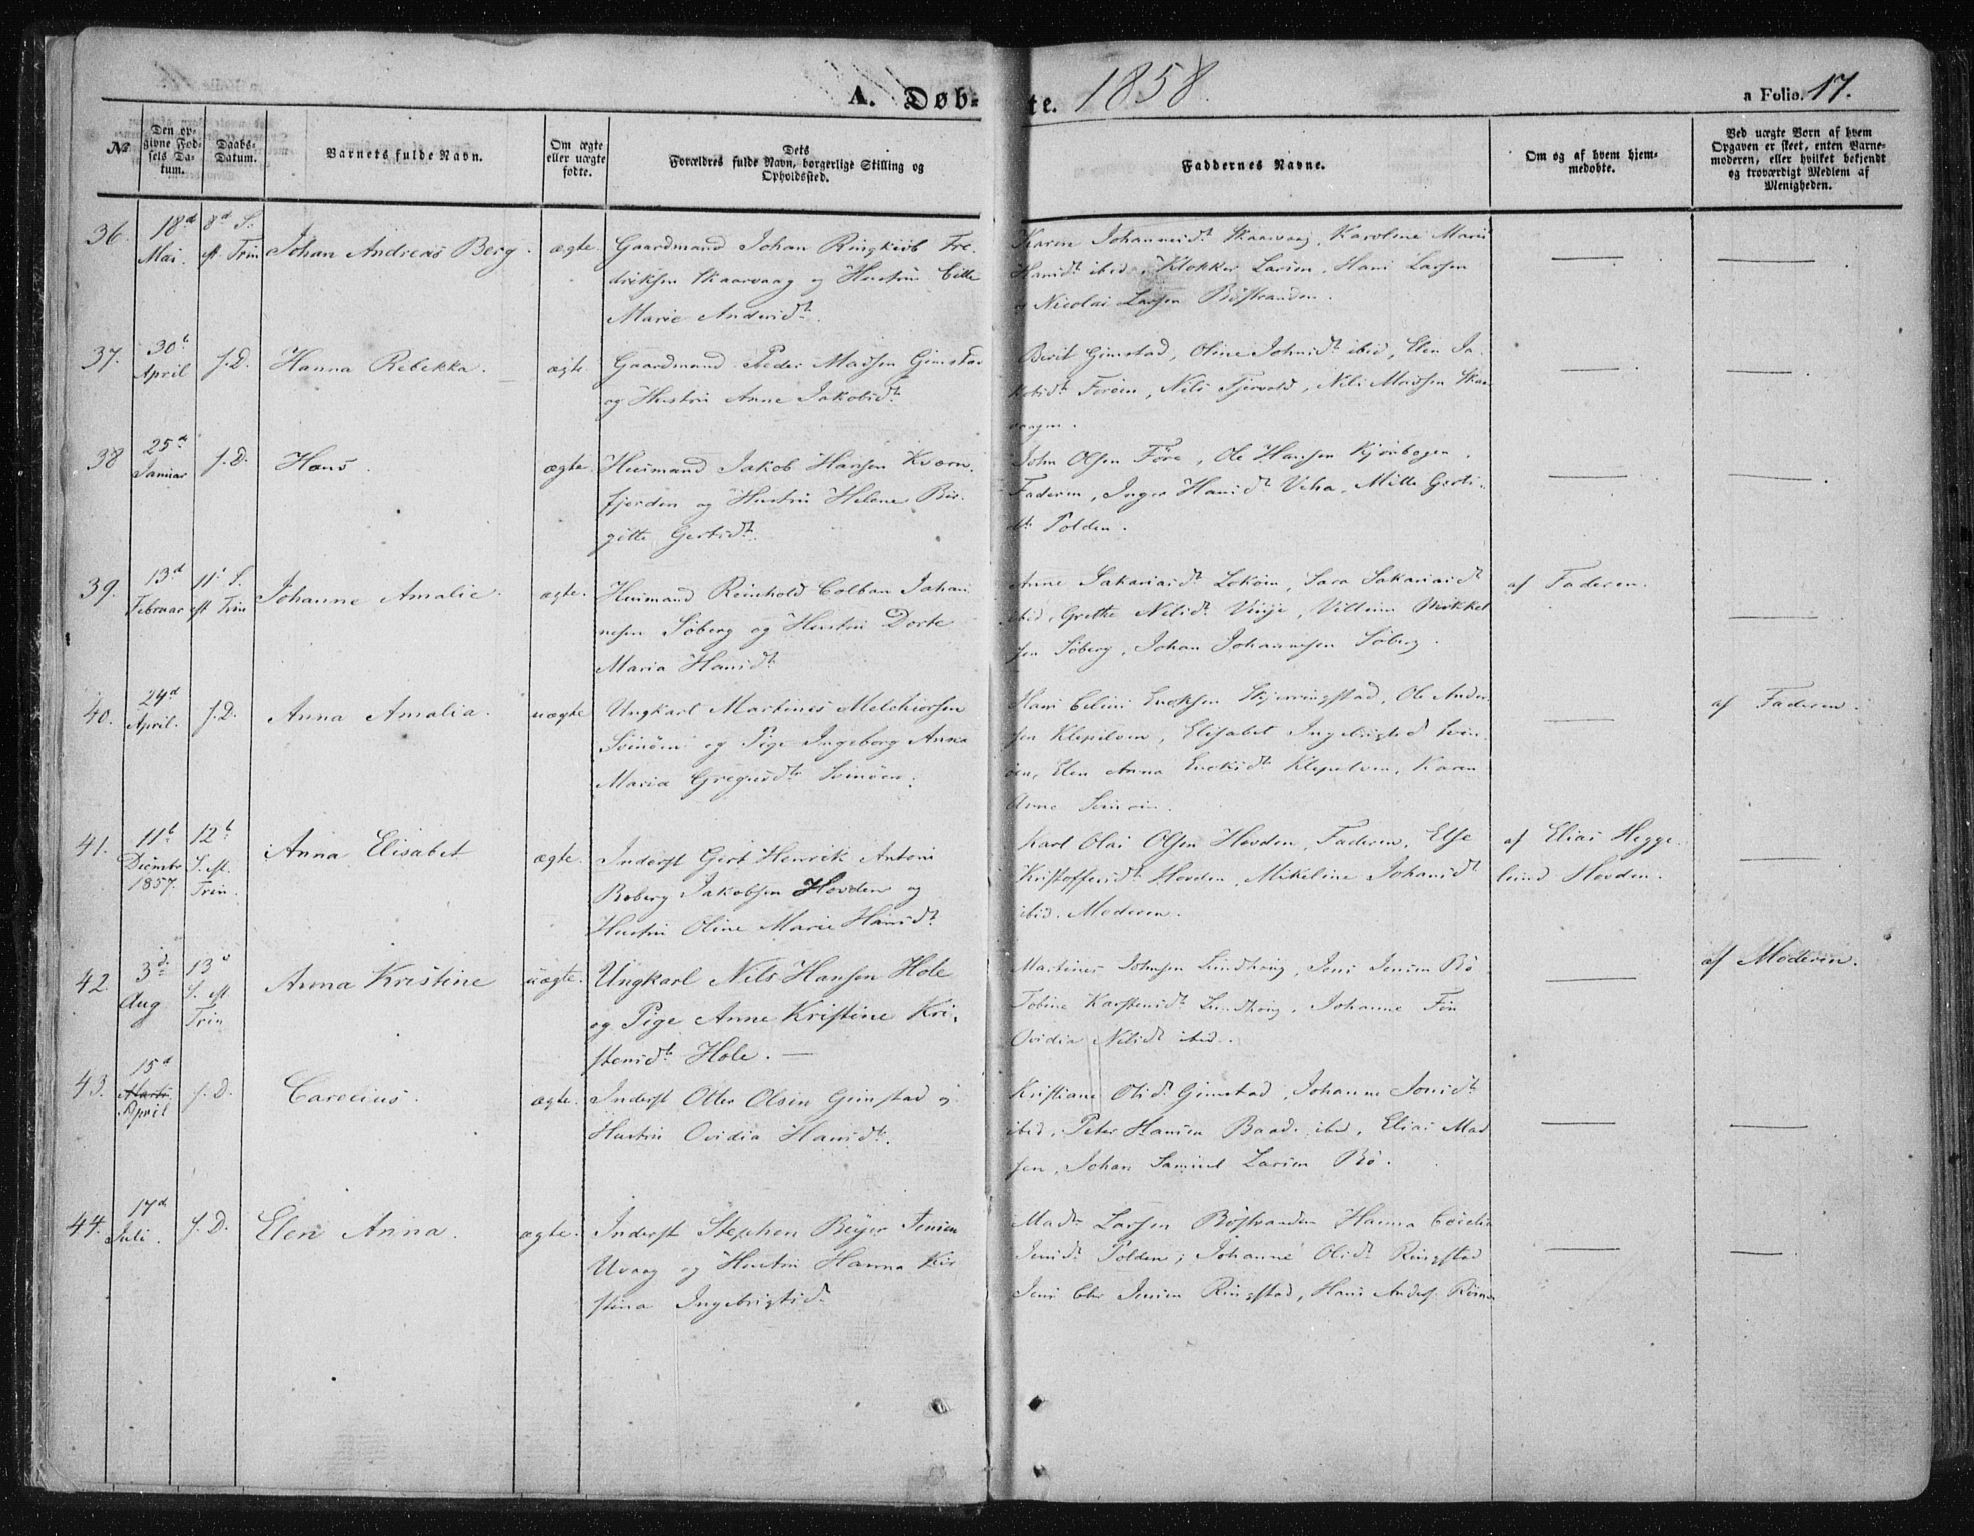 A. Døb-
te. 1858.
a Folio. 17.
No
Den opgivne Fødsels Datum.
Daabs-Datum.
Barnets fulde Navn.
Om ægte eller uægte fødte.
Dets Forældres fulde Navn, borgerlige Stilling og Opholdssted.
Faddernes Navne.
Om og af hvem hjemmedøbte.
Ved uægte Børn af hvem Opgaven er skeet, enten Barnemoderen, eller hvilket bekjendt og troværdigt Medlem af Menigheden.
36. 18d Mai. 8d S. eft Trin Johan Andreas Berg. ægte.
Gaardmand Johan Ringkiøb Fre
driksen Skaarvaag og Hustru
Marie Andersdt.
Karen Johannesdt Skaarvaag, Karoline Marie
Hansdt ibid, Klokker Larsen, Hans Larsen
og Nicolai Larsen Bøstranden.
37. 30t April f.D. Hanna Rebekka. ægte.
Gaardmand Peder Madsen Gimstad
og Hustru Anne Jakobsdt
Berit Gimstad, Oline Johnsdt ibid, Elen Ja-
kobsdt Forøen, Nils Fjervold, Nils Madsen Skaar
vaagen.
38 25d Januar f.D. Hans. ægte.
Huusmand Jakob Hansen Kværn
fjorden og Hustru Helene Bir-
gitte Gertsdt.
John Olsen Føre, Ole Hansen Kjørbogen,
Faderen, Inger Hansdt Veha, Mille Gerts-
dt Polden.
39. 13d Februar 11t S. eft Trin Johanne Amalie. ægte.
Huusmand Reinhold Colban Johan
nesen Søberg og Hustru Dorte
Maria Hansdt
Anne Sakariasdt Lokøen, Sara Sakariasdt
ibid, Grethe Nilsdt Vinje, Vilhelm Mikkel
sen Søberg, Johan Johannesen Søberg.
af Faderen.
40. 24d April. f.D. Anna Amalia. uægte
Ungkarl Martines Melchiorsen
Svinøen og Pige Ingeborg Anna
Maria Gregersdt Svinøen.
Hans Enoksen Skjerringstad, Ole Ander
sen Klepelven, Elisabet Svin
øen, Elen Anna Enoksdt Klepelven, Karen
Anne
af Faderen.
41. 11t Decmbr 1857. 12t S. eft. Trin. Anna Elisabet ægte.
Inderst Gert Henrik Antoni
Boberg Jakobsen Hovden og
Hustru Oline Marie Hansdt
Karl Olai Olsen Hovden, Faderen, Else
Kristoffersdt Hovden, Mikeline Johansdt
ibid. Moderen.
af Elias Hegge-
lund Hovden.
42. 3d Aug. 13d S. eft Trin Anna Kristine uægte.
Ungkarl Nils Hansen Hole
og Pige Anne Kristine Kri-
stensdt Hole. —
Martines Johnsen Lundhøig, Jens Jensen Bø
Tobine Karstensdt Lundhøig, Johanne
Ovidia Nilsdt ibid.
af Moderen.
43. 15d Marts April f.D. Carecius. ægte.
Inderst Otter Olsen Gimstad og
Hustru Ovidia Hansdt.
Kristiane Olsdt Gimstad, Johanne Jonsdt
ibid, Peter Hansen Baad. ibid, Elias Mad
sen, Johan Samuel Larsen Bø.
44. 17d Juli. f.D. Elen Anna. ægte.
Inderst Stephen Beyer Jensen
Uvaag og Hustru Hanna Kir
stina Ingebrigtsd.
Mads Larsen Bøstranden Hanna
Jensdt Polden, Johanne Olsdt Ringstad
Jens Chr Jensen Ringstad, Hans Anders.